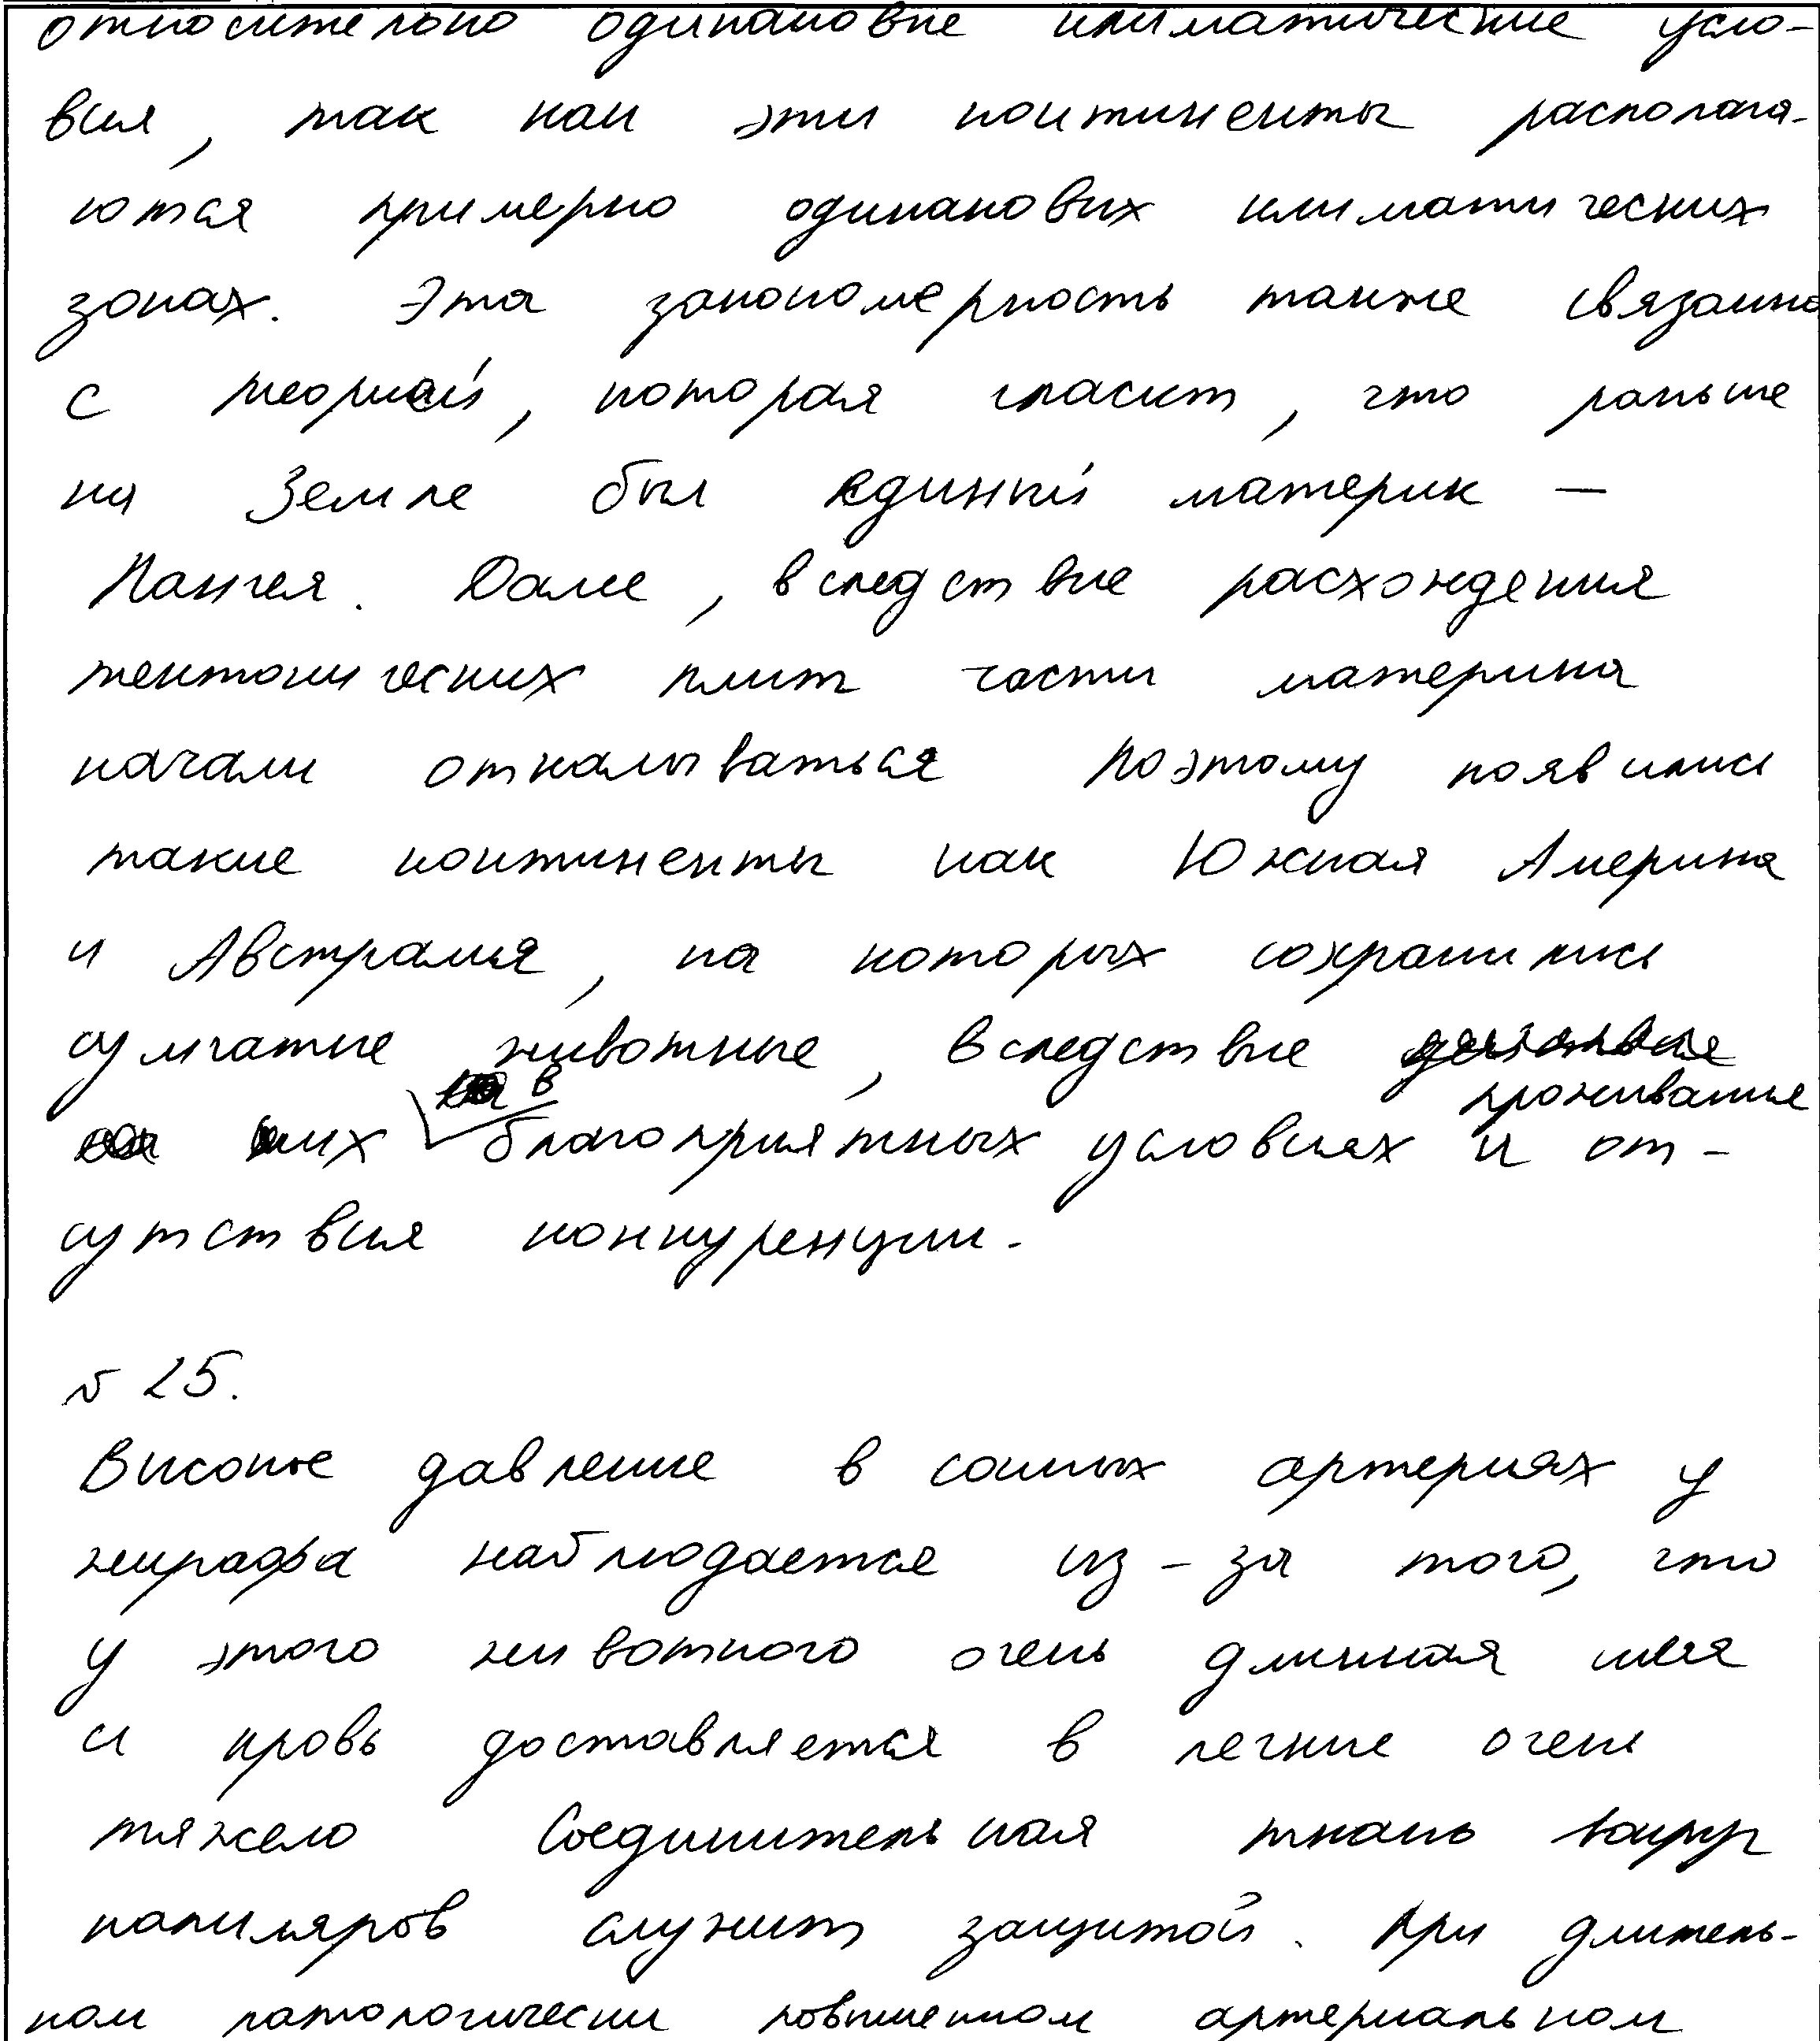 относительно одинаковые климатические усло-
вия, так как эти континенты располага-
ются примерно одинаковых климатических
зонах. Эта закономерность также связанна
с теорией, которая гласит, что раньше
на Земле был единый материк —
Пангея. Далее, вследствие расхождения
тектонических плит части материка
начали откалываться Поэтому появились
такие континенты как Южная Америка
и Австралия, на которых сохранились
сумчатые животные, вследствие
проживание
в
их благоприятных условиях и от-
сутствия конкуренции.
№ 25.
Высокое давление в сонных артериях у
жирафа наблюдается из-за того, что
у этого животного очень длинная шея
и кровь доставляется в легкие очень
тяжело Соединительная ткань вокруг
капиляров служит защитой. При длитель-
ном патологически повышенном артериальном